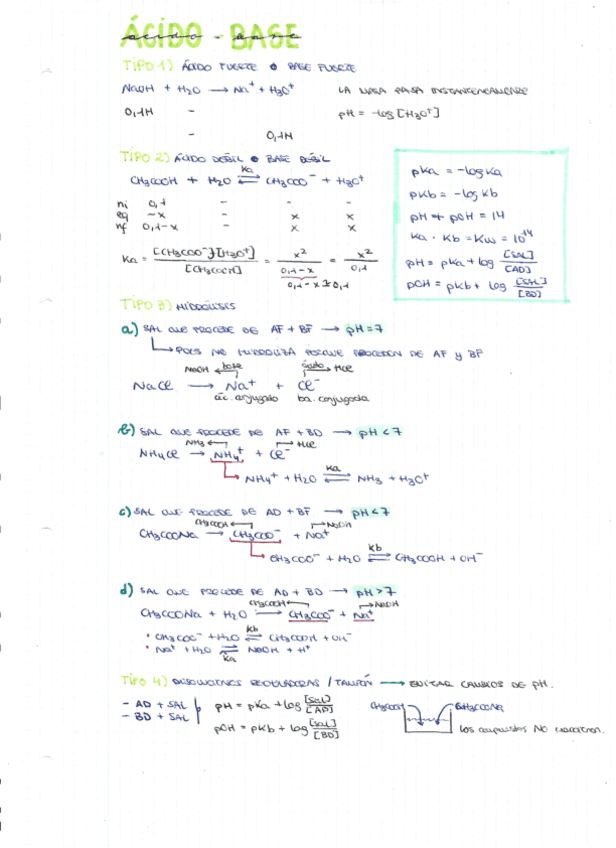 ÁCIDO - BASE
TIPO 1) ÁCIDO FUERTE o BASE FUERTE
NaOH + H2O → Na+ + H3O+ LA MASA PASA INSTANTÁNEAMENTE
0,1M - pH = -log [H3O+]
- 0,1M
TIPO 2) ÁCIDO DÉBIL o BASE DÉBIL
CH3COOH + H2O ⇌ Ka CH3COO- + H3O+
ni 0,1 - - -
eq -x - x x
nf 0,1-x - x x
Ka = [CH3COO-][H3O+] / [CH3COOH] = x² / 0,1-x = x² / 0,1
0,1-x ≅ 0,1
pKa = -log Ka
pKb = -log Kb
pH + pOH = 14
Ka · Kb = Kw = 10^14
pH = pKa + log [SAL]/[AD]
pOH = pKb + log [SAL]/[BD]
TIPO 3) HIDRÓLISIS
a) SAL QUE PROCEDE DE AF + BF → pH = 7
PUES NO HIDROLIZA PORQUE PROCEDEN DE AF y BF
NaOH ← base ácido → HCl
NaCl → Na+ + Cl-
ác. conjugado ba. conjugada
b) SAL QUE PROCEDE DE AF + BD → pH < 7
NH3 ← → HCl
NH4Cl → NH4+ + Cl-
NH4+ + H2O ⇌ Ka NH3 + H3O+
c) SAL QUE PROCEDE DE AD + BF → pH < 7
CH3COOH ← → NaOH
CH3COONa → CH3COO- + Na+
CH3COO- + H2O ⇌ Kb CH3COOH + OH-
d) SAL QUE PROCEDE DE AD + BD → pH > 7
CH3COOH ← → NaOH
CH3COONa + H2O → CH3COO- + Na+
• CH3COO- + H2O ⇌ Kb CH3COOH + OH-
• Na+ + H2O ⇌ Ka NaOH + H+
TIPO 4) DISOLUCIONES REGULADORAS / TAMPÓN → EVITAR CAMBIOS DE pH.
- AD + SAL pH = pKa + log [SAL]/[AD]
- BD + SAL pOH = pKb + log [SAL]/[BD]
CH3COOH CH3COONa
Los compuestos NO reaccionan.